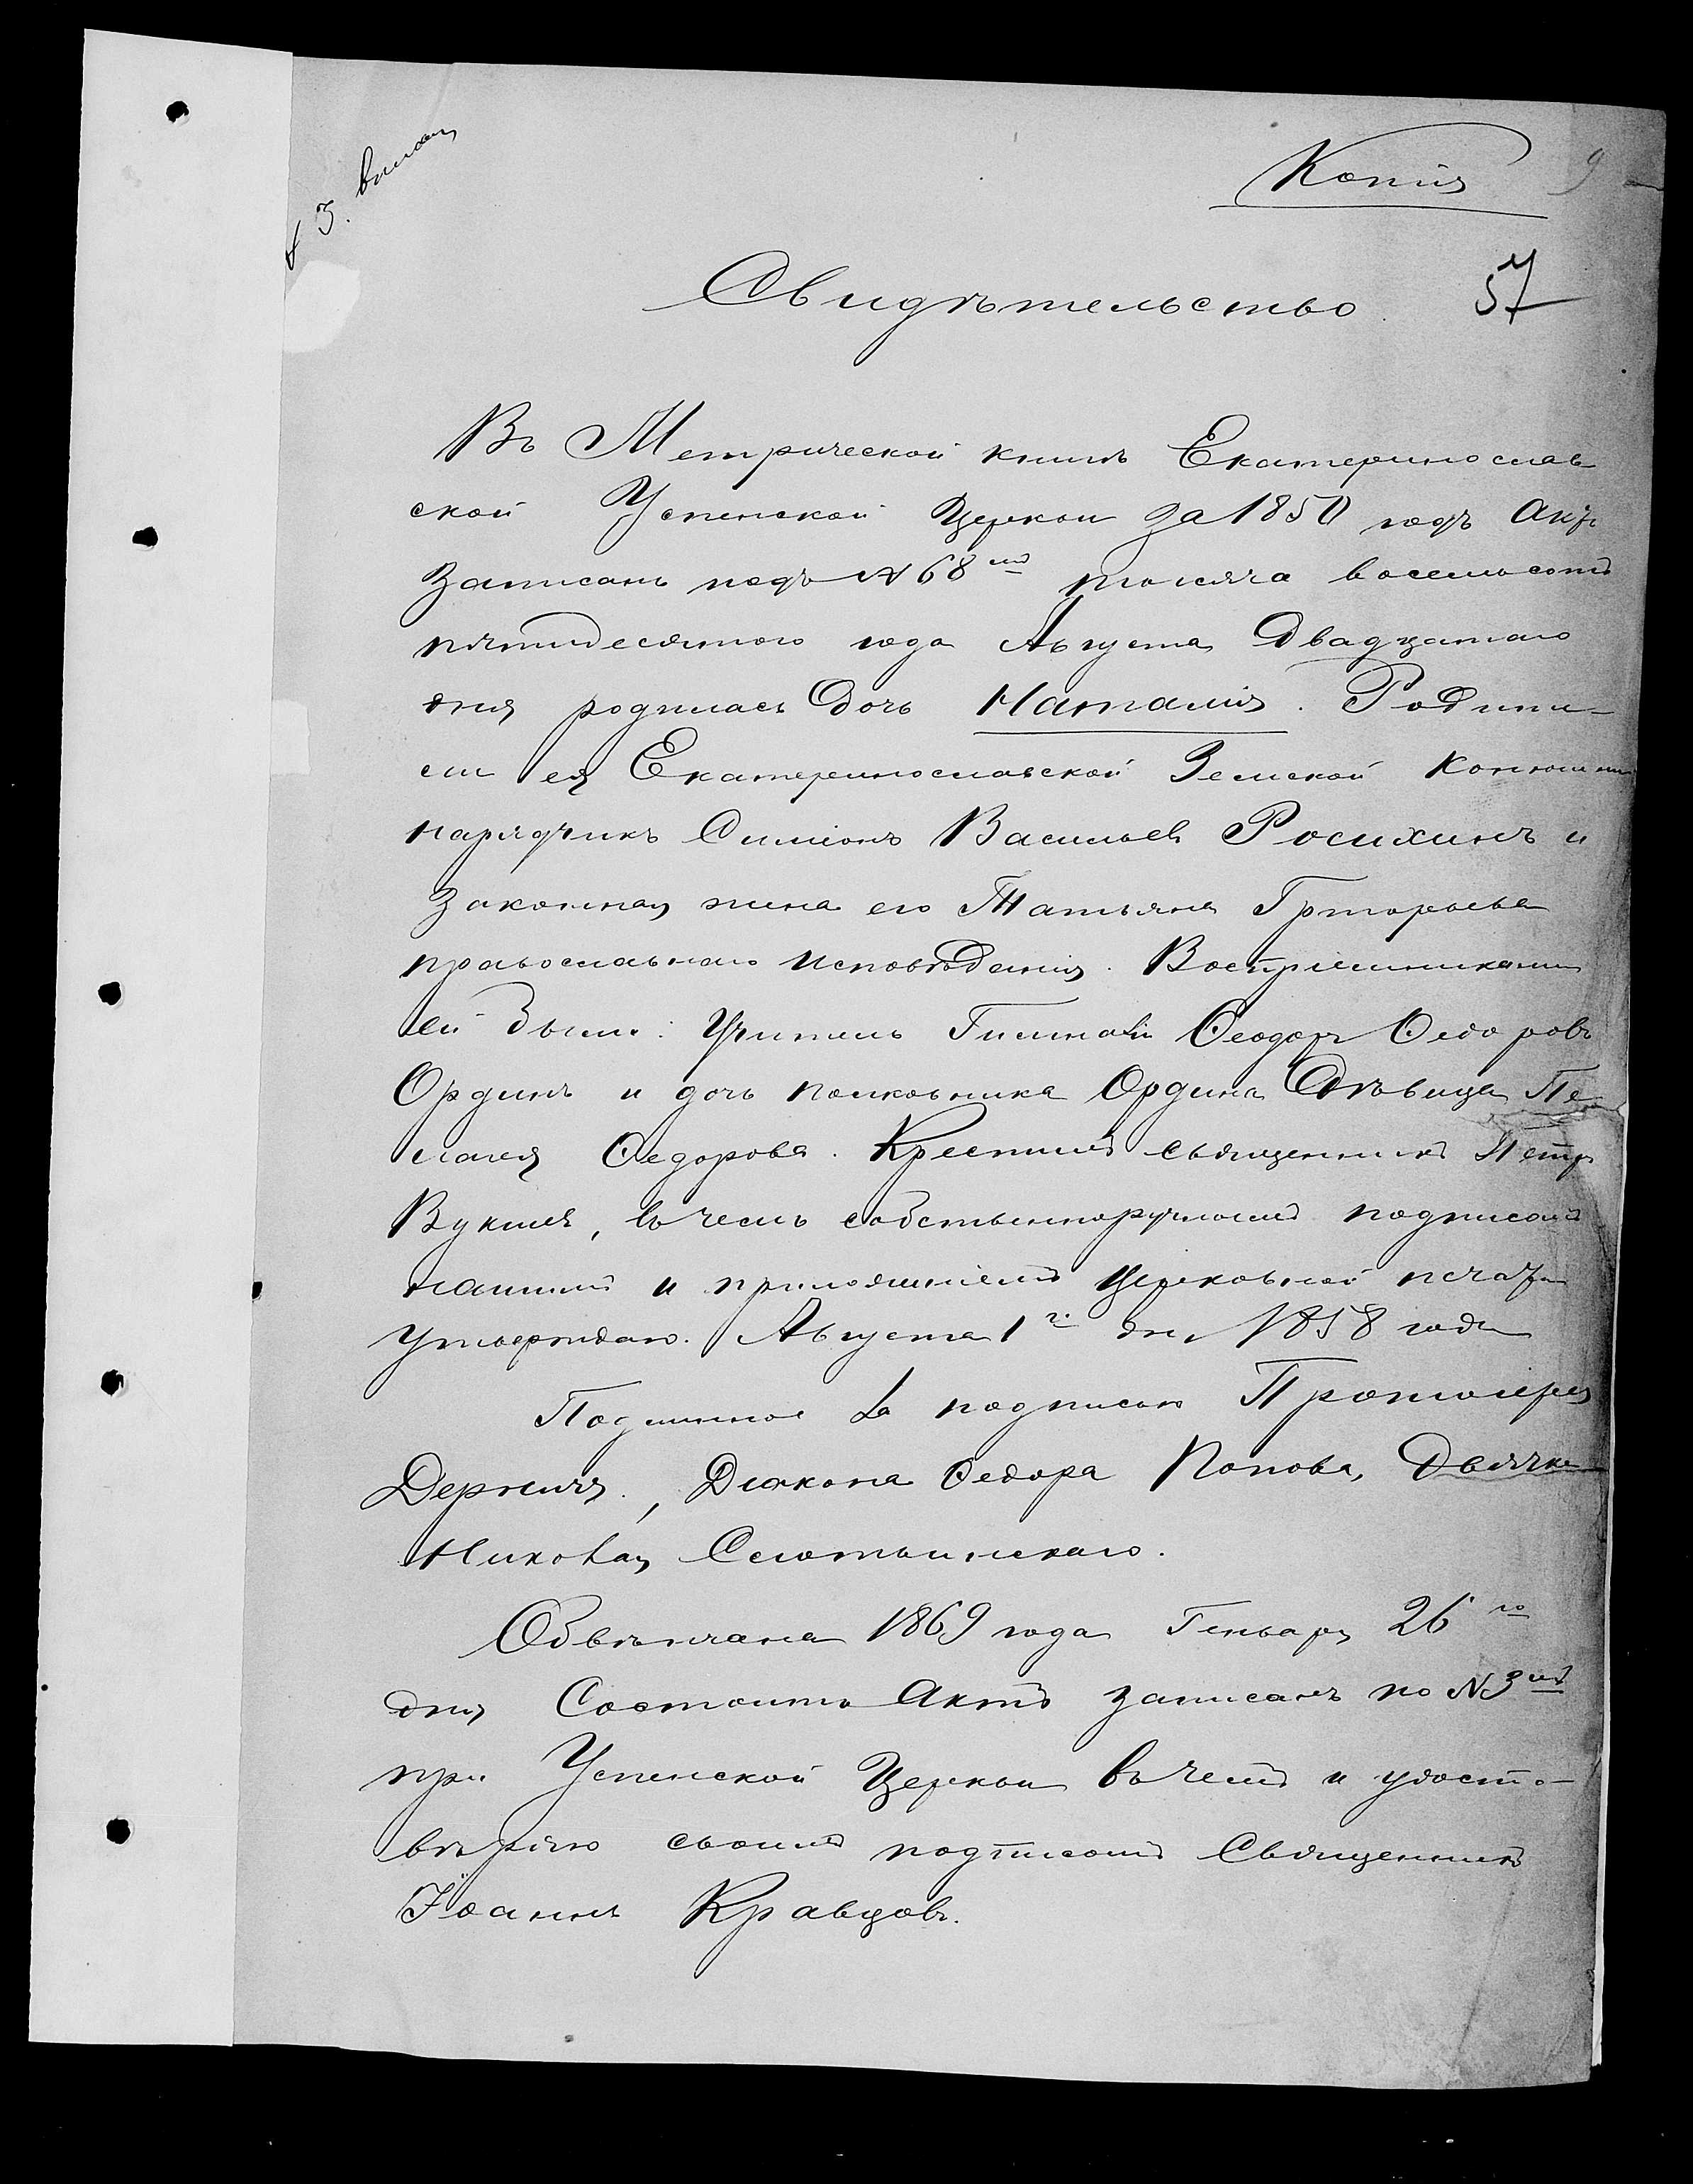 Копія
9
57
Свидѣтельство
Въ Метрической книгѣ Екатеринослав
ской Успенской Церкви за 1850 годъ Актъ
записанъ подъ № 68мъ тысяча восемьсотъ
пятидесятого года Августа Двадцатаго
дня родилась Дочь Наталія. Родите-
ли ея Екатеринославской Земской Конюшни
нарядчикъ Симіонъ Васильевъ Росихинъ и
законная жена его Татьяна Григорьева
православнаго исповѣданія. Воспріемниками
ей были: Учитель Гимназіи Ѳеодоръ Ѳедоровъ
Ординъ и дочь полковника Ордина Дѣвица Пе
лагея Ѳедорова. Крестилъ священникъ Петръ
въ чемъ собственноручнымъ подписомъ
нашимъ и приложеніемъ Церковной печати
утверждаю. Августа 1го дня 1858 года
Подлинное за подписью Протоіерея
Діакона Ѳедора Попова, Дьячка
Николая
Обвѣнчана 1869 года Генваря 26го
дня Состоитъ Актъ записанъ по № 3мъ
при Успенской Церкви въ чемъ и удосто-
вѣряю своимъ подписомъ Священникъ
Іоаннъ Кравцовъ.